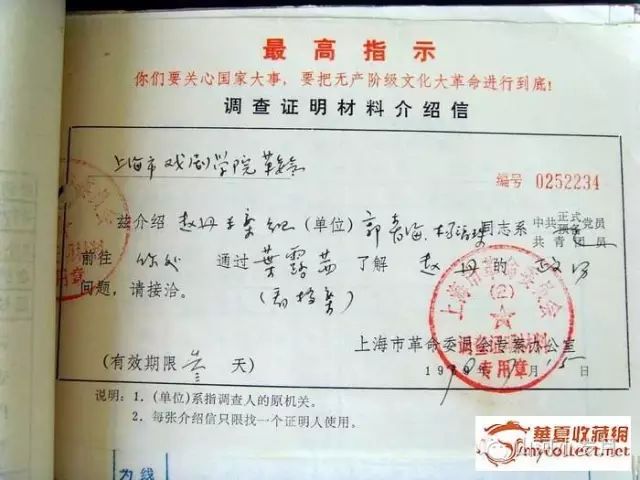 最高指示
你们要关心国家大事，要把无产阶级文化大革命进行到底！
调查证明材料介绍信
上海市戏剧学院革委会
编号 0252234
兹介绍 赵丹专案组 (单位) 郭 同志系 中共正式预备党员 共青团员
前往 你处 通过 葉露茜 了解 赵丹 的 政历
问题，请接洽。
上海市革命委员会专案办公室
(有效期限 叁 天)
1970 15日
上海市革命委员会
(2)
调查证明材料
专用章
专用章
说明：1．(单位)系指调查人的原机关。
2．每张介绍信只限找一个证明人使用。
为线
華夏收藏網
mycollect.net